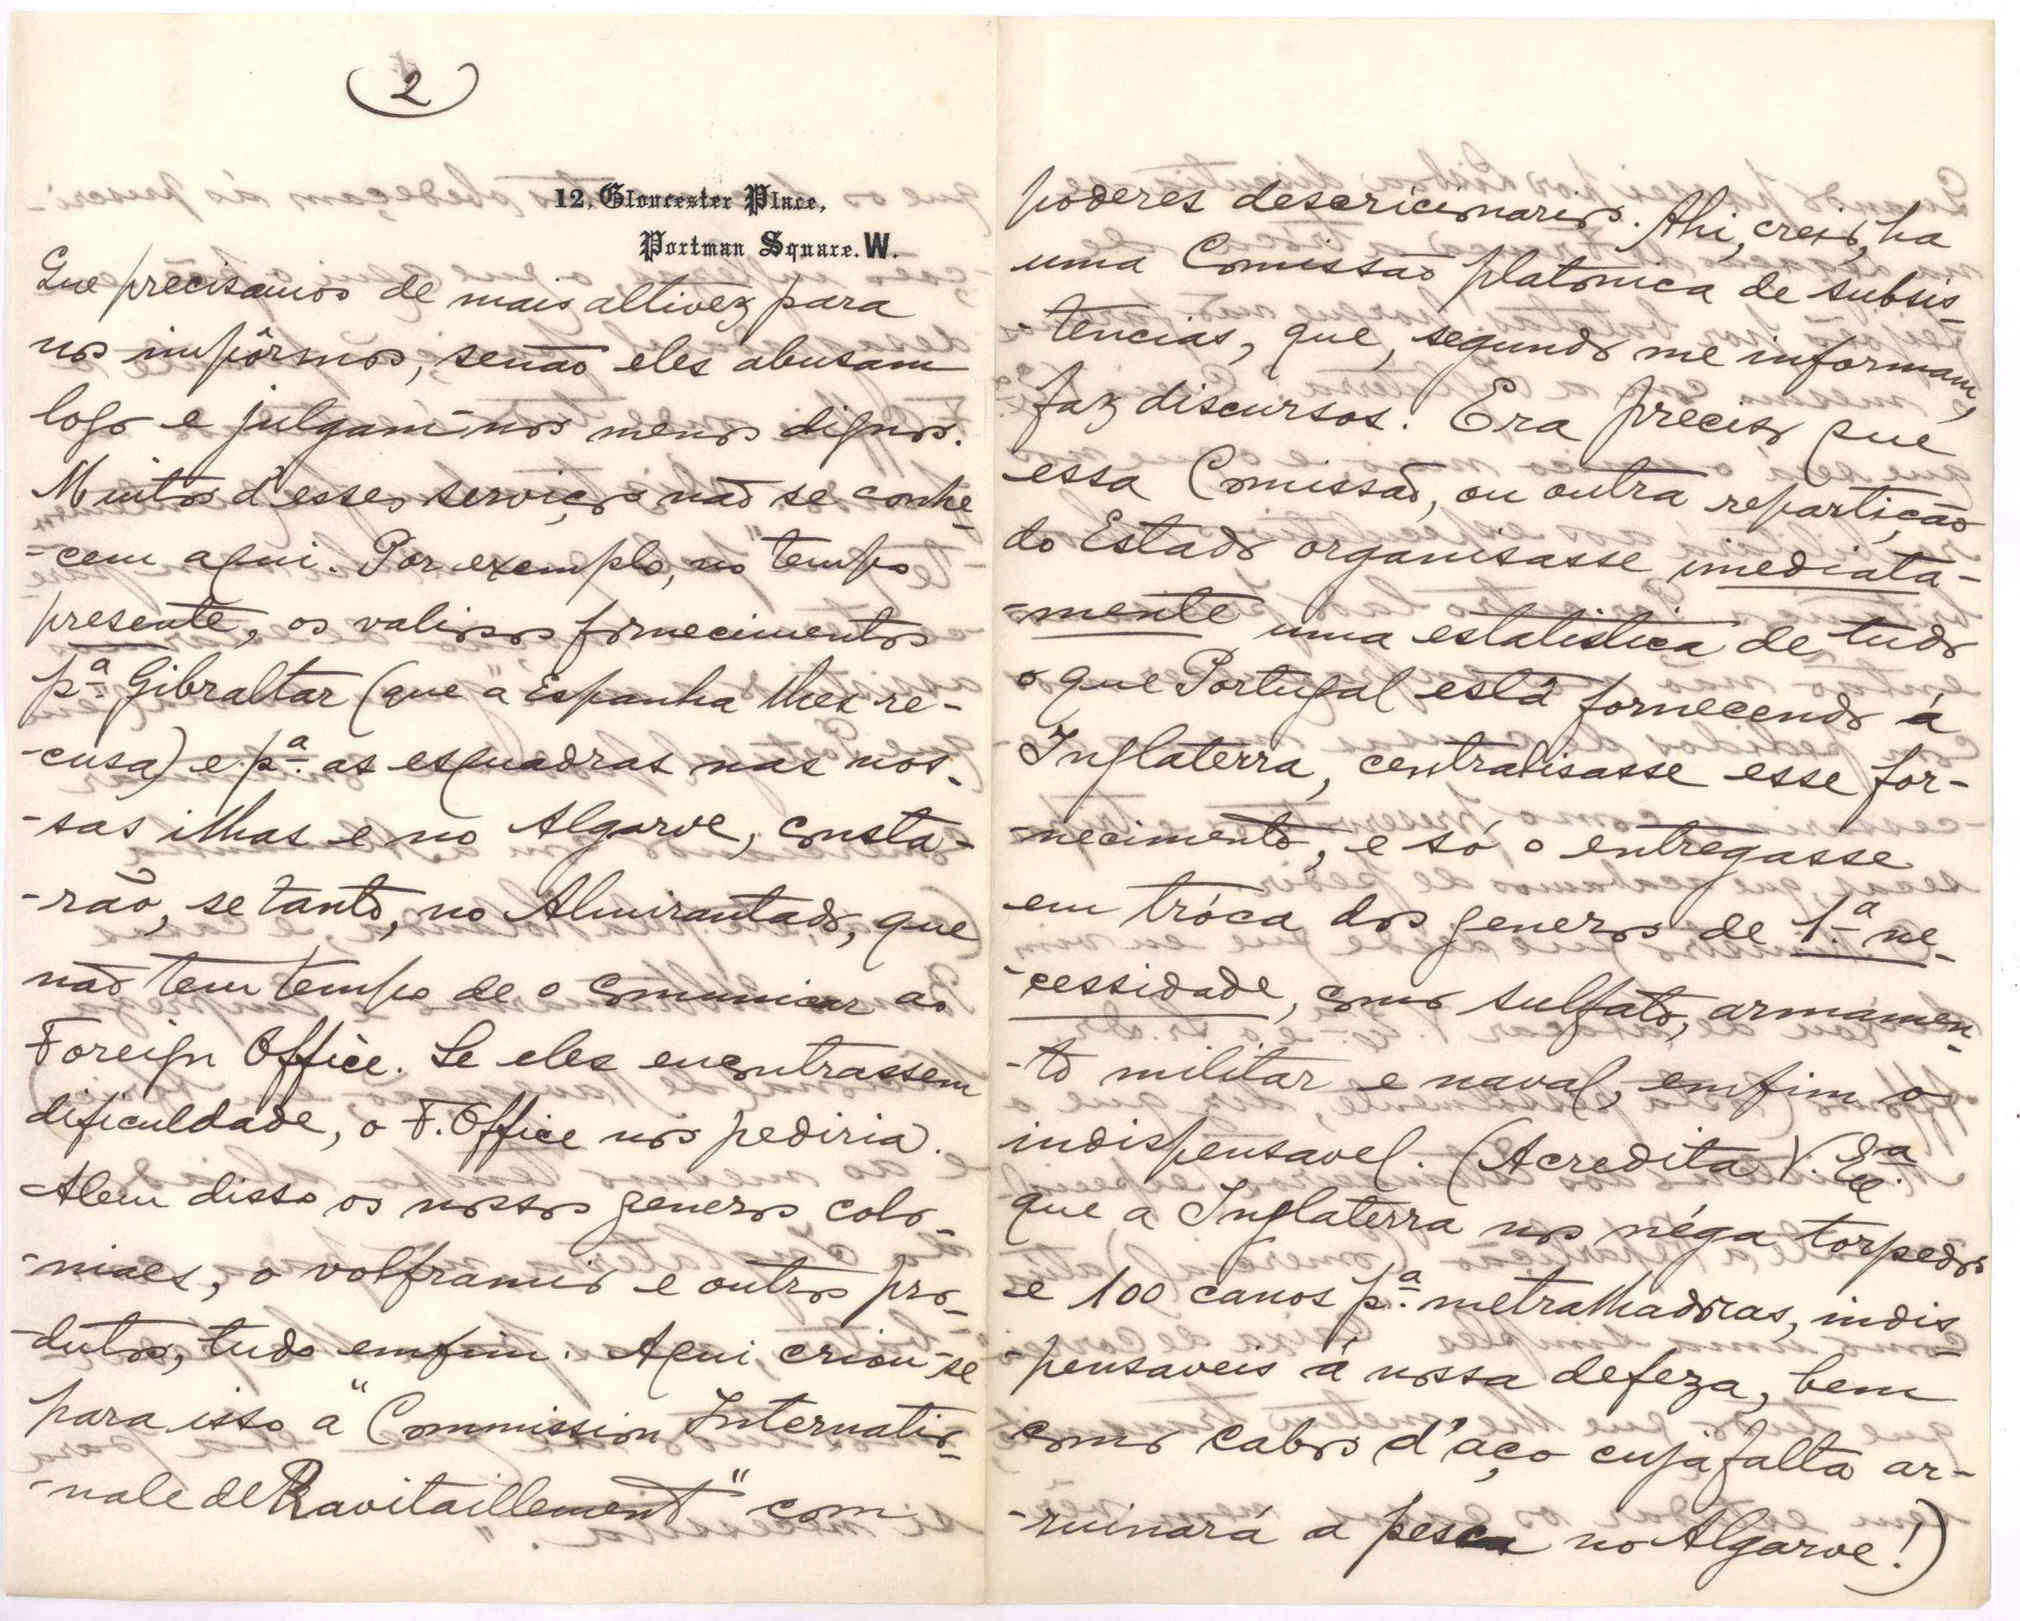 (2)
12, Gloucester Place,
Portman Square. W.
Que precisamos de mais altivez para
nos impôrmos, senão eles abusam
logo e julgam-nos menos dignos.
Muitos d'esses serviços não se conhe-
-cem aqui. Por exemplo, no tempo
presente, os valiosos fornecimentos
pª. Gibraltar (que a Espanha lhes re-
-cusa) e pª. as esquadras nas nos-
-sas ilhas e no Algarve, consta-
-rão, se tanto, no Almirantado, que
não tem tempo de o comunicar ao
Foreign Office. Se eles encontrassem
dificuldade, o F. Office nos pediria).
Alem disso os nossos generos colo-
-niaes, o volframio e outros pro-
-dutos, tudo emfim. Aqui criou-se
para isso a "Commission Internatio-
-nale de Ravitaillement" com
poderes descricionarios. Ahi, creio, ha
uma Comissão platonica de subsis-
tencias, que, segundo me informam,
faz discursos. Era preciso que
essa Comissão, ou outra repartição
do Estado organisasse imediata-
-mente uma estatistica de tudo
o que Portugal está fornecendo á
Inglaterra, centralisasse esse for-
-necimento, e só o entregasse
em tróca dos generos de 1.ª ne-
-cessidade, como sulfato, armamen-
-to militar e naval, emfim o
indispensavel. (Acredita V. Exª.
que a Inglaterra nos néga torpedos
e 100 canos pª. metralhadoras, indis-
-pensaveis á nossa defeza, bem
como cabos d'aço cuja falta ar-
-ruinará a pesca no Algarve!)